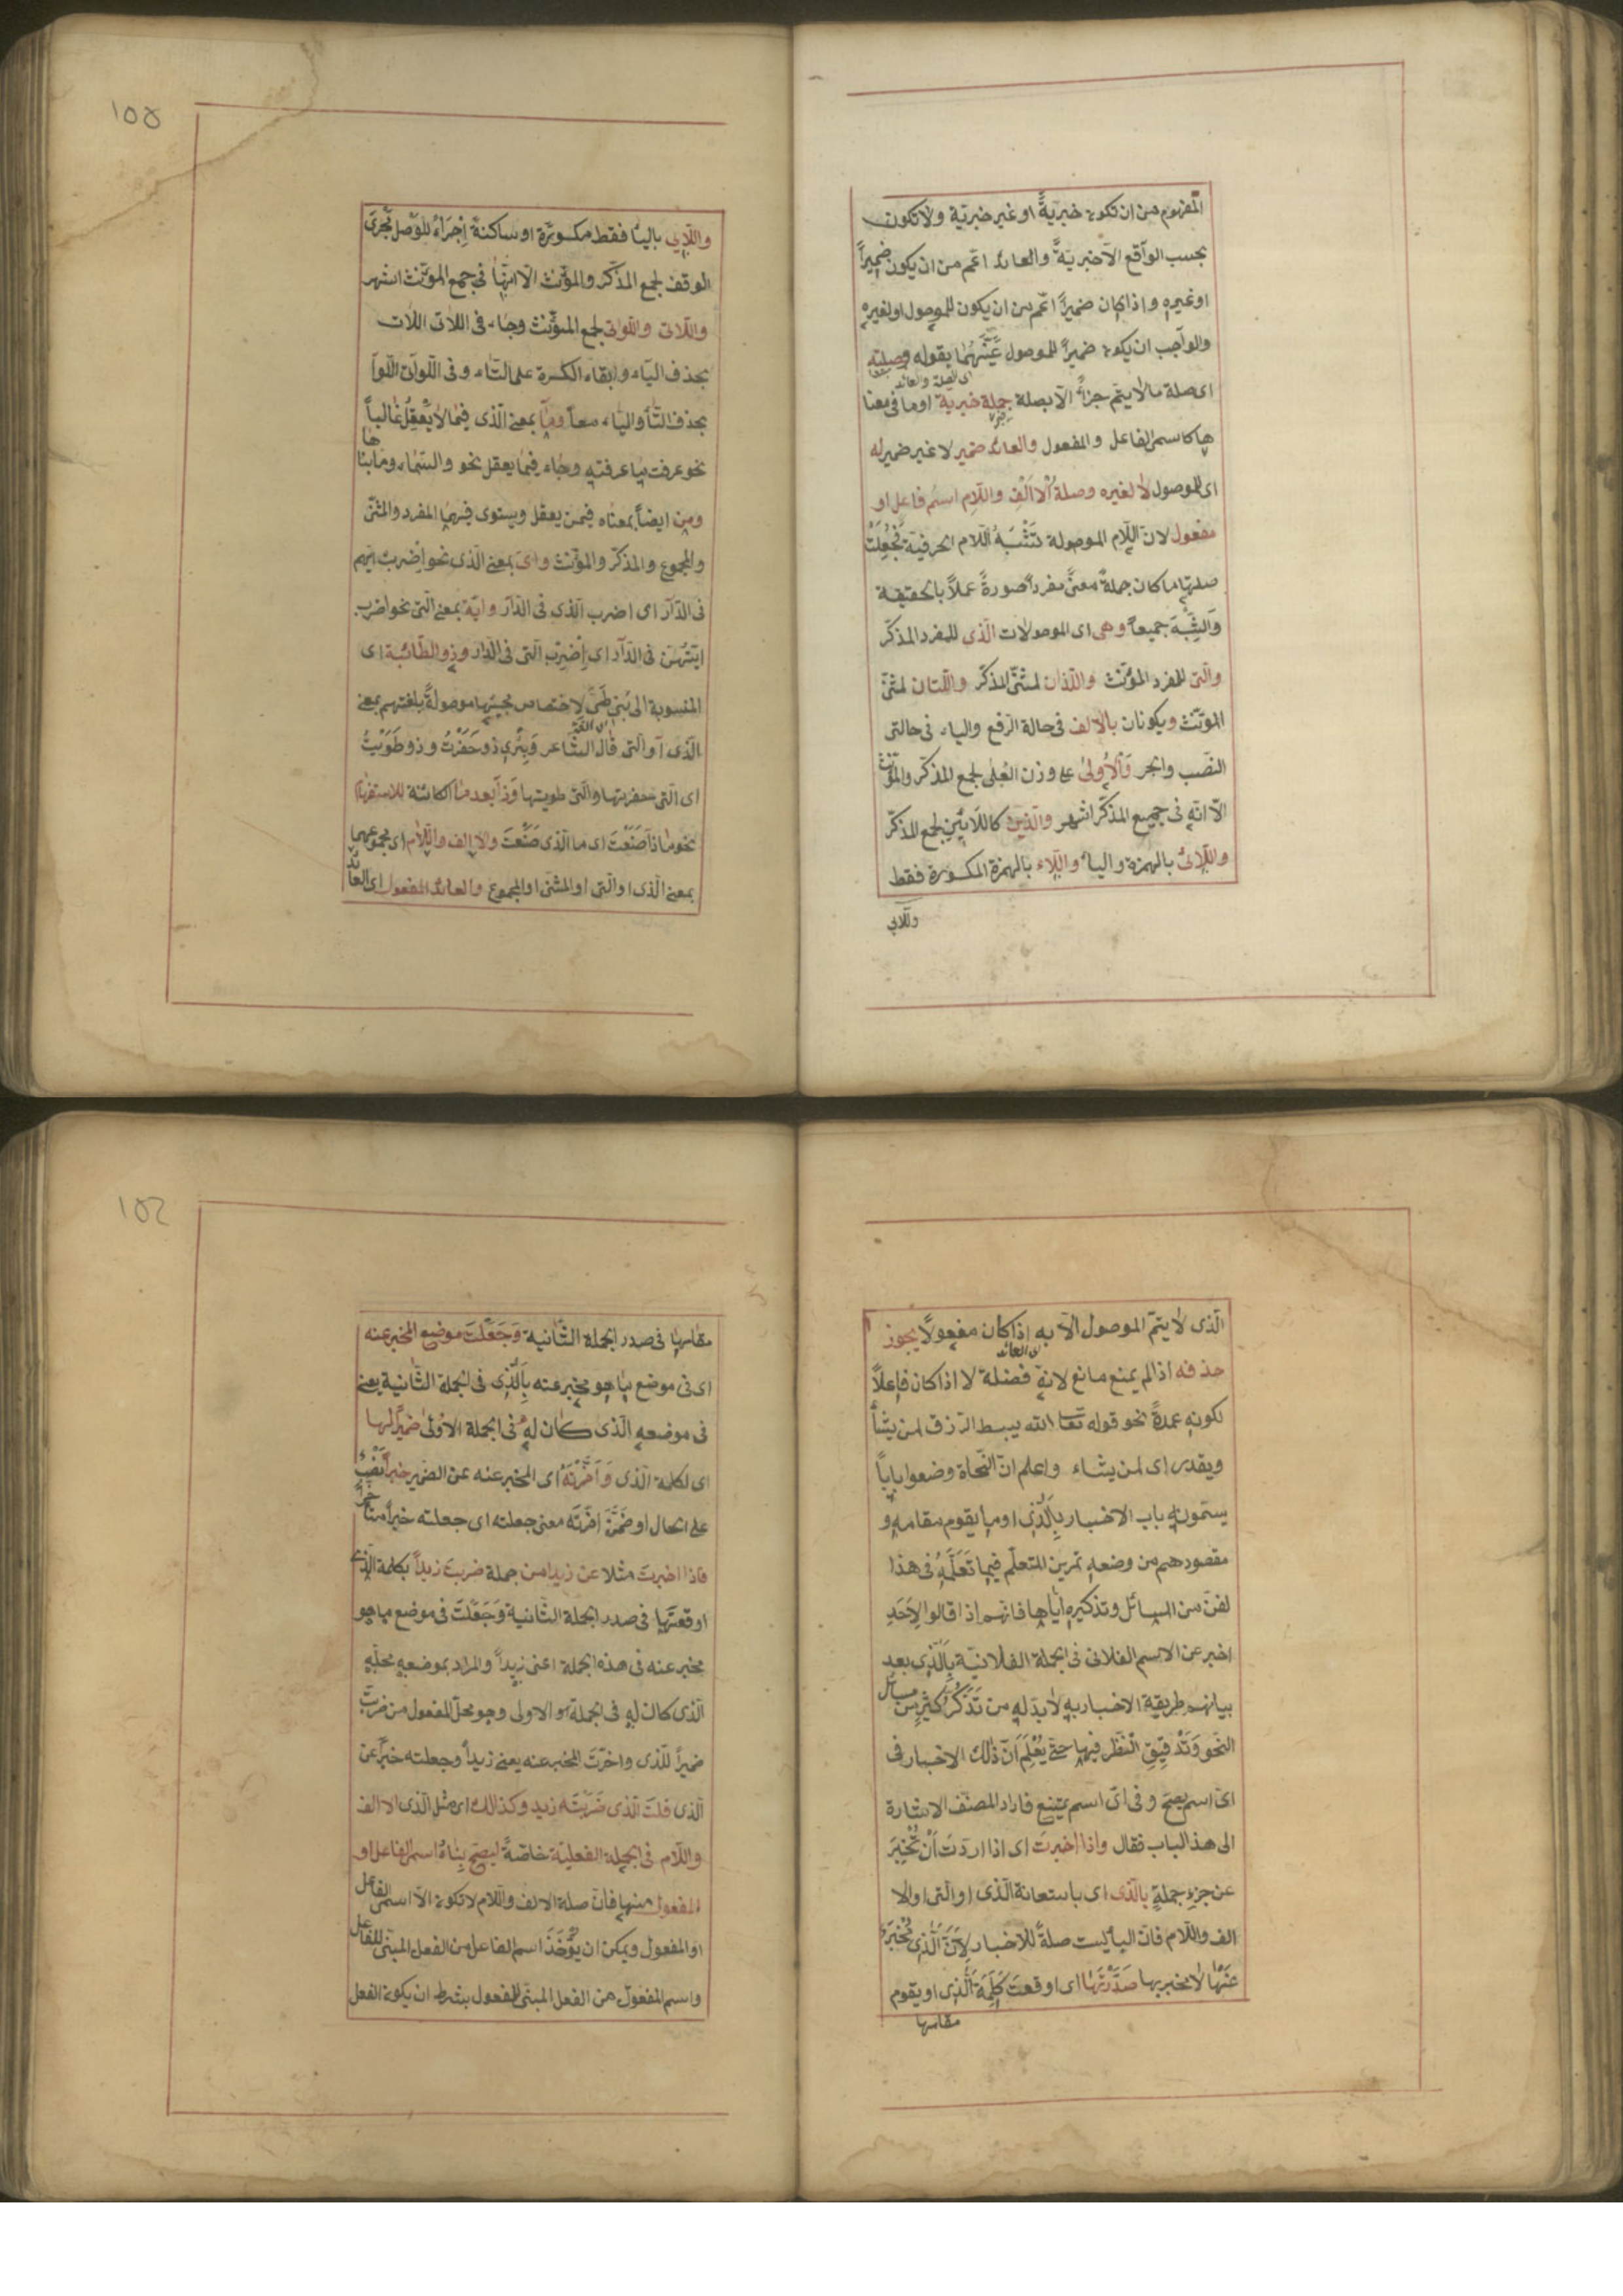 المفهوم من ان تكون خبريةً او غير خبريّة ولا تكون
بحسب الواقع الّا خبريّةً والعائد اعمّ من ان يكون ضميراً
او غيره واذا كان ضميراً اعمّ من ان يكون للموصول او لغيره
والواجب ان يكون ضميراً للموصول عيّنهما بقوله وصلته
اى الصلة والعائد
اى صلة ما لا يتم جزأً الّا بصلة جملة خبرية او ما فى معنا
ها كاسم الفاعل والمفعول والعائد ضمير لا غير ضمير له
اى للموصول لا لغيره وصلة الالف واللام اسم فاعل او
مفعول لان اللّام الموصولة تشبه اللّام الحرفية فجُعِلَتْ
صلتها ما كان جملةً معنىً مفرداً صورةً عملاً بالحقيقة
والشبه جميعاً وهى اى الموصولات الّذى للمفرد المذكّر
والّتى للمفرد المؤنّث واللّذان لمثنّى المذكّر واللّتان لمثنّى
المؤنّث ويكونان بالالف فى حالة الرّفع والياء فى حالتى
النصب والجر والاُولىٰ على وزن العُلى لجمع المذكّر والمؤنّث
الّا انّه فى جميع المذكّر اشهر والّذين كاللّائين لجمع المذكّر
واللّائى بالهمزة واليا واللّاء بالهمزة المكسورة فقط
واللّاى
١٥٥
واللّاى باليا فقط مكسورة او ساكنة اِجْرَاءً للوصل مُجرَى
الوقف لجمع المذكّر والمؤنّث الّا انّها فى جمع المؤنّث اشهر
واللّاتى واللّواتى لجمع المؤنّث وجاء فى اللّاتى اللّات
بحذف الياء وابقاء الكسرة على التّاء وفى اللّواتى اللّوا
بحذف التّا والياء معاً وما بمعنى الّذى فيما لا يَعْقِلُ غالباً
نحو عرفت ما عرفته وجاء فيما يعقل نحو والسّماء وما بنا
ها
ومن ايضاً بمعناه فيمن يعقل ويستوى فيهما المفرد والمثنّى
والمجموع والمذكّر والمؤنّث واىّ بمعنى الّذى نحو اِضرب ايّهم
فى الدّار اى اضرب الّذى فى الدّار وايّة بمعنى الّتى نحو اضرب
ايّتهنّ فى الدّار اى اِضْرِب الّتى فى الدّار وذو الطّائيّة اى
المنسوبة الى بنى طىّ لاختصاص مجيئها موصولةً بلغتهم بمعنى
الّذى او الّتى قال الشّاعر وَبِئْرِى ذو حَفَرْتُ وذو طَوَيْتُ
اى الّتى حفرتها والّتى طويتها وذا بعد ما الكائنة للاستفهام
نحو ماذا صَنَعْتَ اى ما الّذى صَنَعْتَ والالف واللّام اى مجموعهما
بمعنى الّذى او الّتى او المثنى او المجموع والعائد المفعول اى العائد
الّذى لا يتمّ الموصول الّا به اذا كان مفعولاً يجوز
اى العائد
حذفه اذا لم يمنع مانع لانه فضلة لا اذا كان فاعلاً
لكونه عمدةً نحو قوله تعا الله يبسط الرّزق لمن يشأ
ويقدر اى لمن يشاء واعلم انّ النّحاة وضعوا باباً
يسمّونه باب الاخبار بالّذى او ما يقوم مقامه و
مقصودهم من وضعه تمرين المتعلّم فيما تَعَلَّمَهُ فى هذا
لفنّ من المسائل وتذكيره ايّاها فانّهم اذا قالوا لِاَحَدٍ
اخبر عن الاسم الفلانى فى الجملة الفلانيّة بالّذى بعد
بيانهم طريقة الاخبار به لا بدّ له من تَذَكُّرِ كثيرٍ من مسائل
النحو وَتَدْقِيقِ النّظر فيها حتّى يُعْلَمَ اَنّ ذٰلك الاخبار فى
اىّ اسم يصحّ وفى اىّ اسم يمتنع فاراد المصنّف الاشارة
الى هذا الباب فقال واذا اخبرت اى اذا اردت اَنْ تُخْبِرَ
عن جزء جملةٍ بالّذى اى باستعانة الّذى او الّتى او الا
الف واللّام فانّ البأ ليست صلةً للاخبار لِاَنّ الّذى مُخْبَرٌ
عَنْهَا لا مخبر بها صَدَّرْتَهَا اى اوقعت كَلِمَةَ الّذى او يقوم
مقامها
١٥٦
مقامها فى صدر الجملة الثّانية وَجَعَلْتَ موضع المخبر عنه
اى فى موضع ما هو مخبر عنه بالّذى فى الجملة الثّانية يعنى
فى موضعه الّذى كان له فى الجملة الاولىٰ ضميراً لها
اى لكلمة الّذى وَاَخَّرْتَهُ اى المخبر عنه عن الضمير خبراً نَصْبٌ
على الحال او ضَمَّنَ اخّرته معنى جعلته اى جعلته خبراً متأخراً
فاذا اخبرت مثلا عن زيد من جملة ضربت زيداً بكلمة الّذى
اوقعتها فى صدر الجملة الثّانية وَجَعَلْتَ فى موضع ما هو
مخبر عنه فى هذه الجملة اعنى زيداً والمراد بموضعه محلّه
الّذى كان له فى الجملة الاولى وهو محلّ المفعول من ضربتُ
ضميراً للّذى واخّرت المخبر عنه يعنى زيداً وجعلته خبراً عن
الّذى قلتَ الّذى ضَرَبْتُه زيد وكذالك اى مثل الّذى الا الف
واللّام فى الجملة الفعليّة خاصّةً ليصحّ بناءُ اسم الفاعل او
المفعول منها فانّ صلة الالف واللّام لا تكون الّا اسمى الفاعل
او المفعول ويمكن ان يُؤْخَذَ اسم الفاعل من الفعل المبنى للفاعل
واسم المفعول من الفعل المبنى للمفعول بشرط ان يكون الفعل